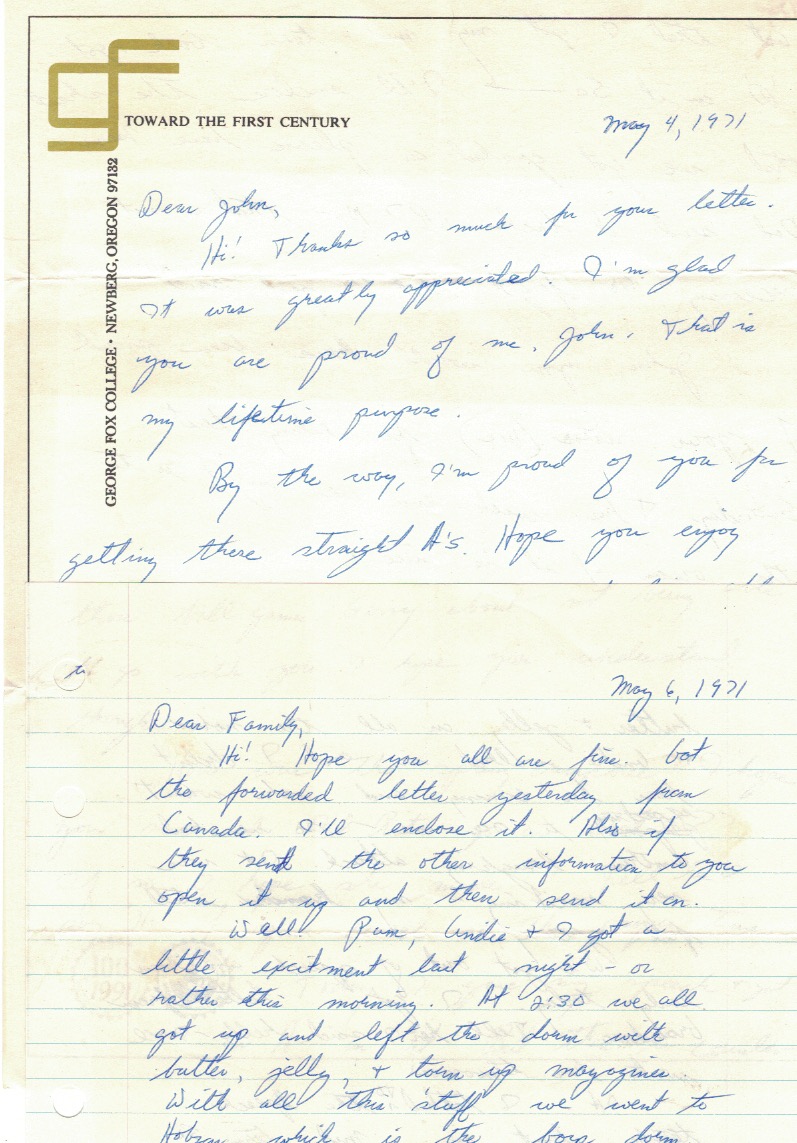 gf
TOWARD THE FIRST CENTURY
GEORGE FOX COLLEGE • NEWBERG, OREGON 97132
May 4, 1971
Dear John,
Hi! Thanks so much for your letter.
It was greatly appreciated. I'm glad
you are proud of me, John. That is
my lifetime purpose.
By the way, I'm proud of you for
getting those straight A's. Hope you enjoy
May 6, 1971
Dear Family,
Hi! Hope you all are fine. Got
the forwarded letter yesterday from
Canada. I'll enclose it. Also if
they send the other information to you
open it up and then send it on.
Well! Pam, Cindie & I got a
little excitment last night - or
rather this morning. At 2:30 we all
got up and left the dorm with
butter, jelly, & torn up magazines.
With all this stuff we went to
Hobson which is the boys dorm